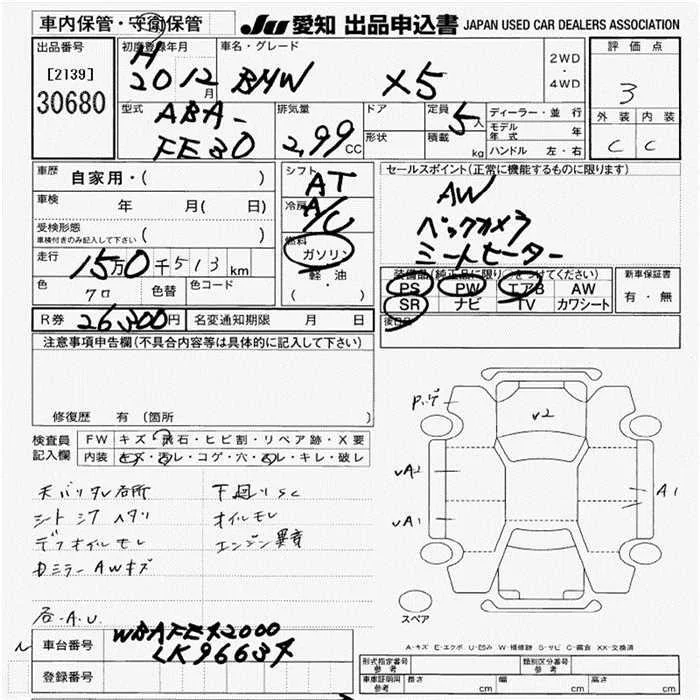 車内保管・守衛保管
JU 愛知 出品申込書 JAPAN USED CAR DEALERS ASSOCIATION
出品番号
[2139]
30680
初度登録年月
H
20 12 月
車名・グレード
BMW X5
2WD
・
4WD
評価点
3
外装 内装
C C
型式
ABA-
FE30
排気量
2,99 CC
ドア
形状
定員
5 人
積載
kg
ディーラー・並行
モデル年式 年
ハンドル 左・右
車歴
自家用・( )
車検 年 月( 日)
受検形態
車検付きのみ記入して下さい ( )
走行
15万0千513km
色 色替 色コード
クロ
シフト
AT
冷房
A/C
燃料
ガソリン
軽・油
( )
セールスポイント(正常に機能するものに限ります)
AW
バックカメラ
シートヒーター
装備品(純正品に限り○をつけてください)
PS PW エアB AW
SR ナビ TV カワシート
新車保証書
有・無
後日品
R券 26,300円 名変通知期限 月 日
注意事項申告欄(不具合内容等は具体的に記入して下さい)
修復歴 有 (箇所 )
検査員記入欄
FW キズ・飛石・ヒビ割・リペア跡・X要
内装 キズ・汚レ・コゲ・穴・スレ・キレ・破レ
天バリタレ 下廻りSC
シートシワ ヘタリ オイルモレ
デフオイルモレ エンジン異音
Dミラー AWキズ
V2
vA2
vA1
A1
スペア
A-キズ E-エクボ U-凹み W-補修跡 S-サビ C-腐食 XX-交換済
車台番号
WBAFE42000
LK96634
登録番号
型式指定番号
参考
類別区分番号
参考
車庫証明用
参考
長さ cm 幅 cm 高さ cm